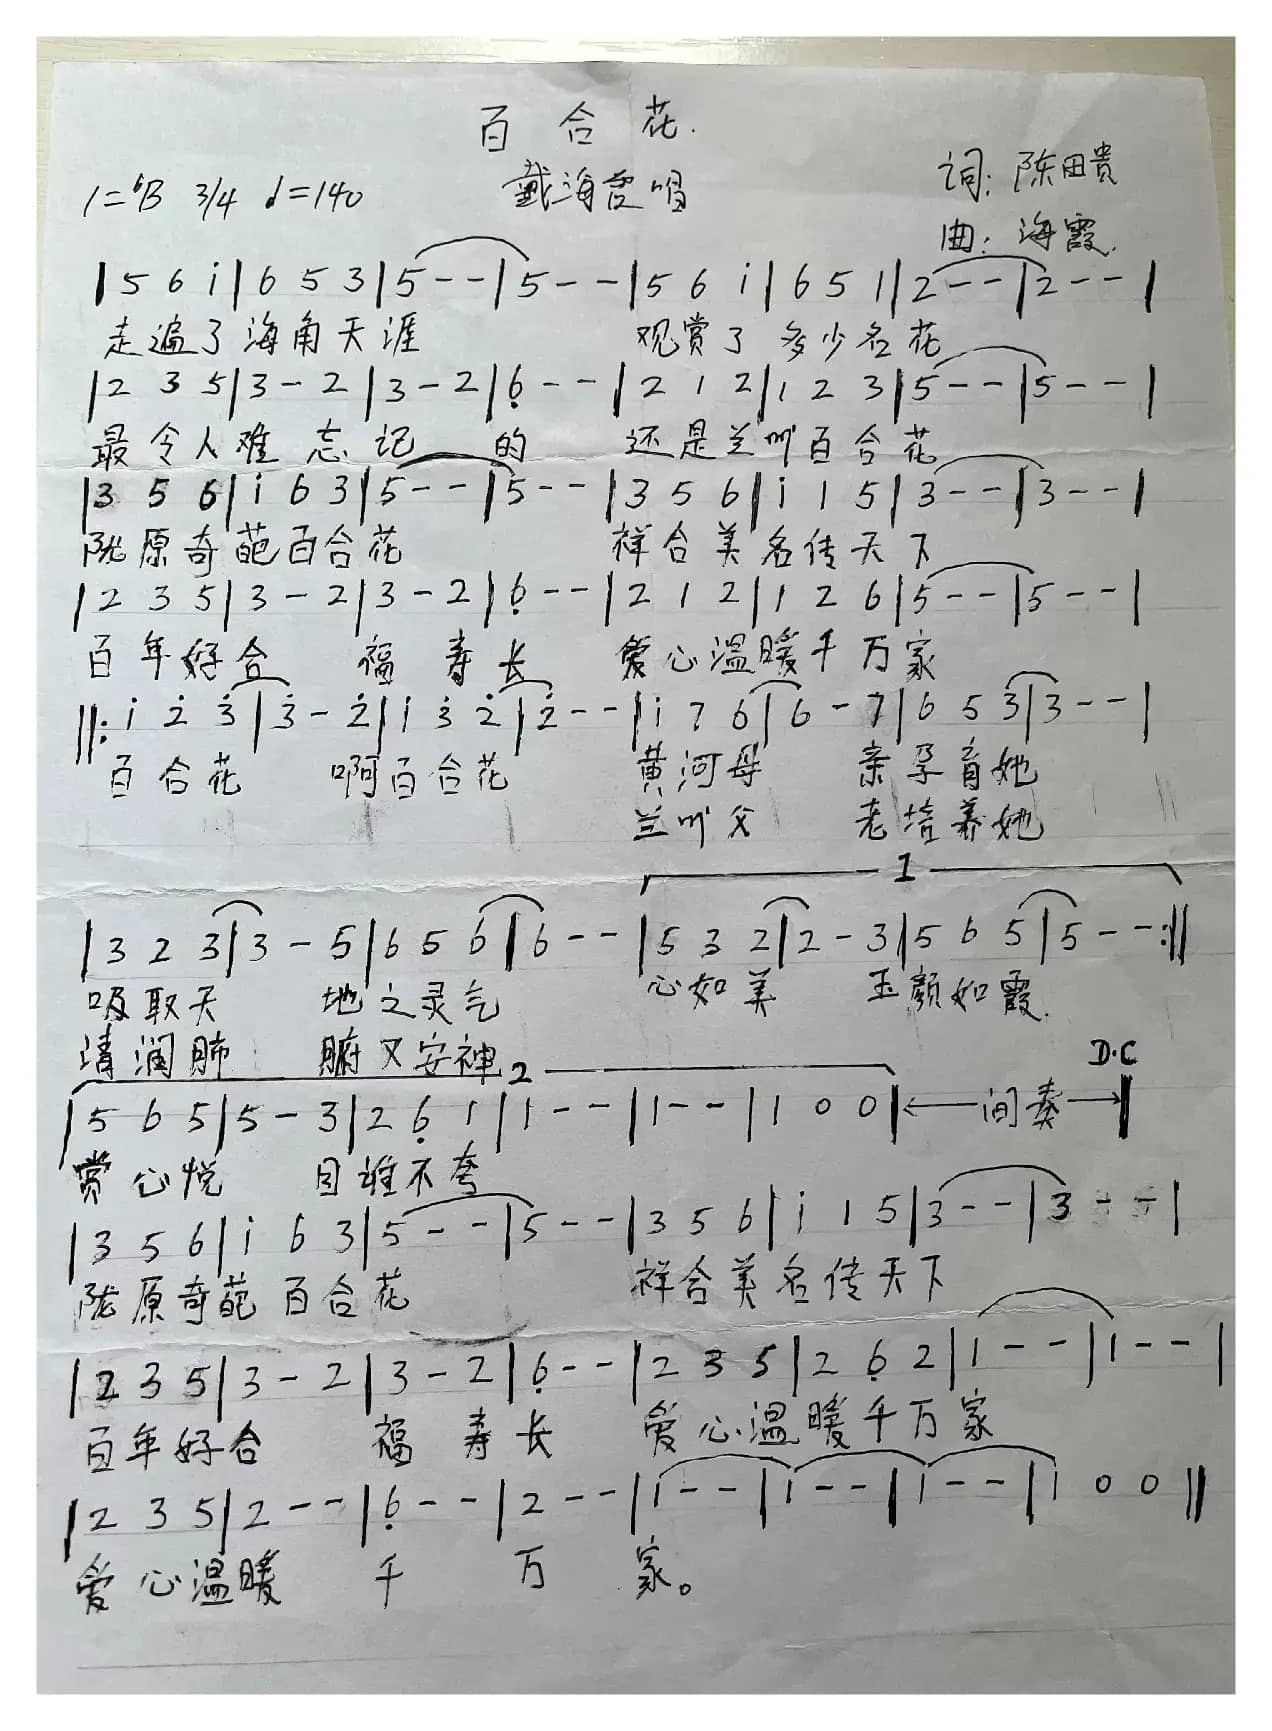 百合花.
1=♭B 3/4 ♩=140 戴海霞唱 词:陈田贵
曲:海霞.
| 5 6 i | 6 5 3 | 5 - - | 5 - - | 5 6 i | 6 5 1 | 2 - - | 2 - - |
走遍了海角天涯 观赏了多少名花
| 2 3 5 | 3 - 2 | 3 - 2 | 6̣ - - | 2 1 2 | 1 2 3 | 5 - - | 5 - - |
最令人难忘记的 还是兰州百合花
| 3 5 6 | i 6 3 | 5 - - | 5 - - | 3 5 6 | i 1 5 | 3 - - | 3 - - |
陇原奇葩百合花 祥合美名传天下
| 2 3 5 | 3 - 2 | 3 - 2 | 6̣ - - | 2 1 2 | 1 2 6 | 5 - - | 5 - - |
百年好合福寿长 爱心温暖千万家
‖: i 2̇ 3̇ | 3̇ - 2̇ | i 3̇ 2̇ | 2̇ - - | i 7 6 | 6 - 7 | 6 5 3 | 3 - - |
百合花 啊百合花 黄河母亲孕育她
兰州父老培养她
1
| 3 2 3 | 3 - 5 | 6 5 6 | 6 - - | 5 3 2 | 2 - 3 | 5 6 5 | 5 - - :‖
吸取天地之灵气 心如美玉颜如霞.
清润肺腑又安神
2 D.C
| 5 6 5 | 5 - 3 | 2 6̣ 1 | 1 - - | 1 - - | 1 0 0 | ← 间奏 → |
赏心悦目谁不夸
| 3 5 6 | i 6 3 | 5 - - | 5 - - | 3 5 6 | i 1 5 | 3 - - | 3 - - |
陇原奇葩百合花 祥合美名传天下
| 2 3 5 | 3 - 2 | 3 - 2 | 6̣ - - | 2 3 5 | 2 6̣ 2 | 1 - - | 1 - - |
百年好合福寿长 爱心温暖千万家
| 2 3 5 | 2 - - | 6̣ - - | 2 - - | 1 - - | 1 - - | 1 - - | 1 0 0 ‖
爱心温暖千万家。